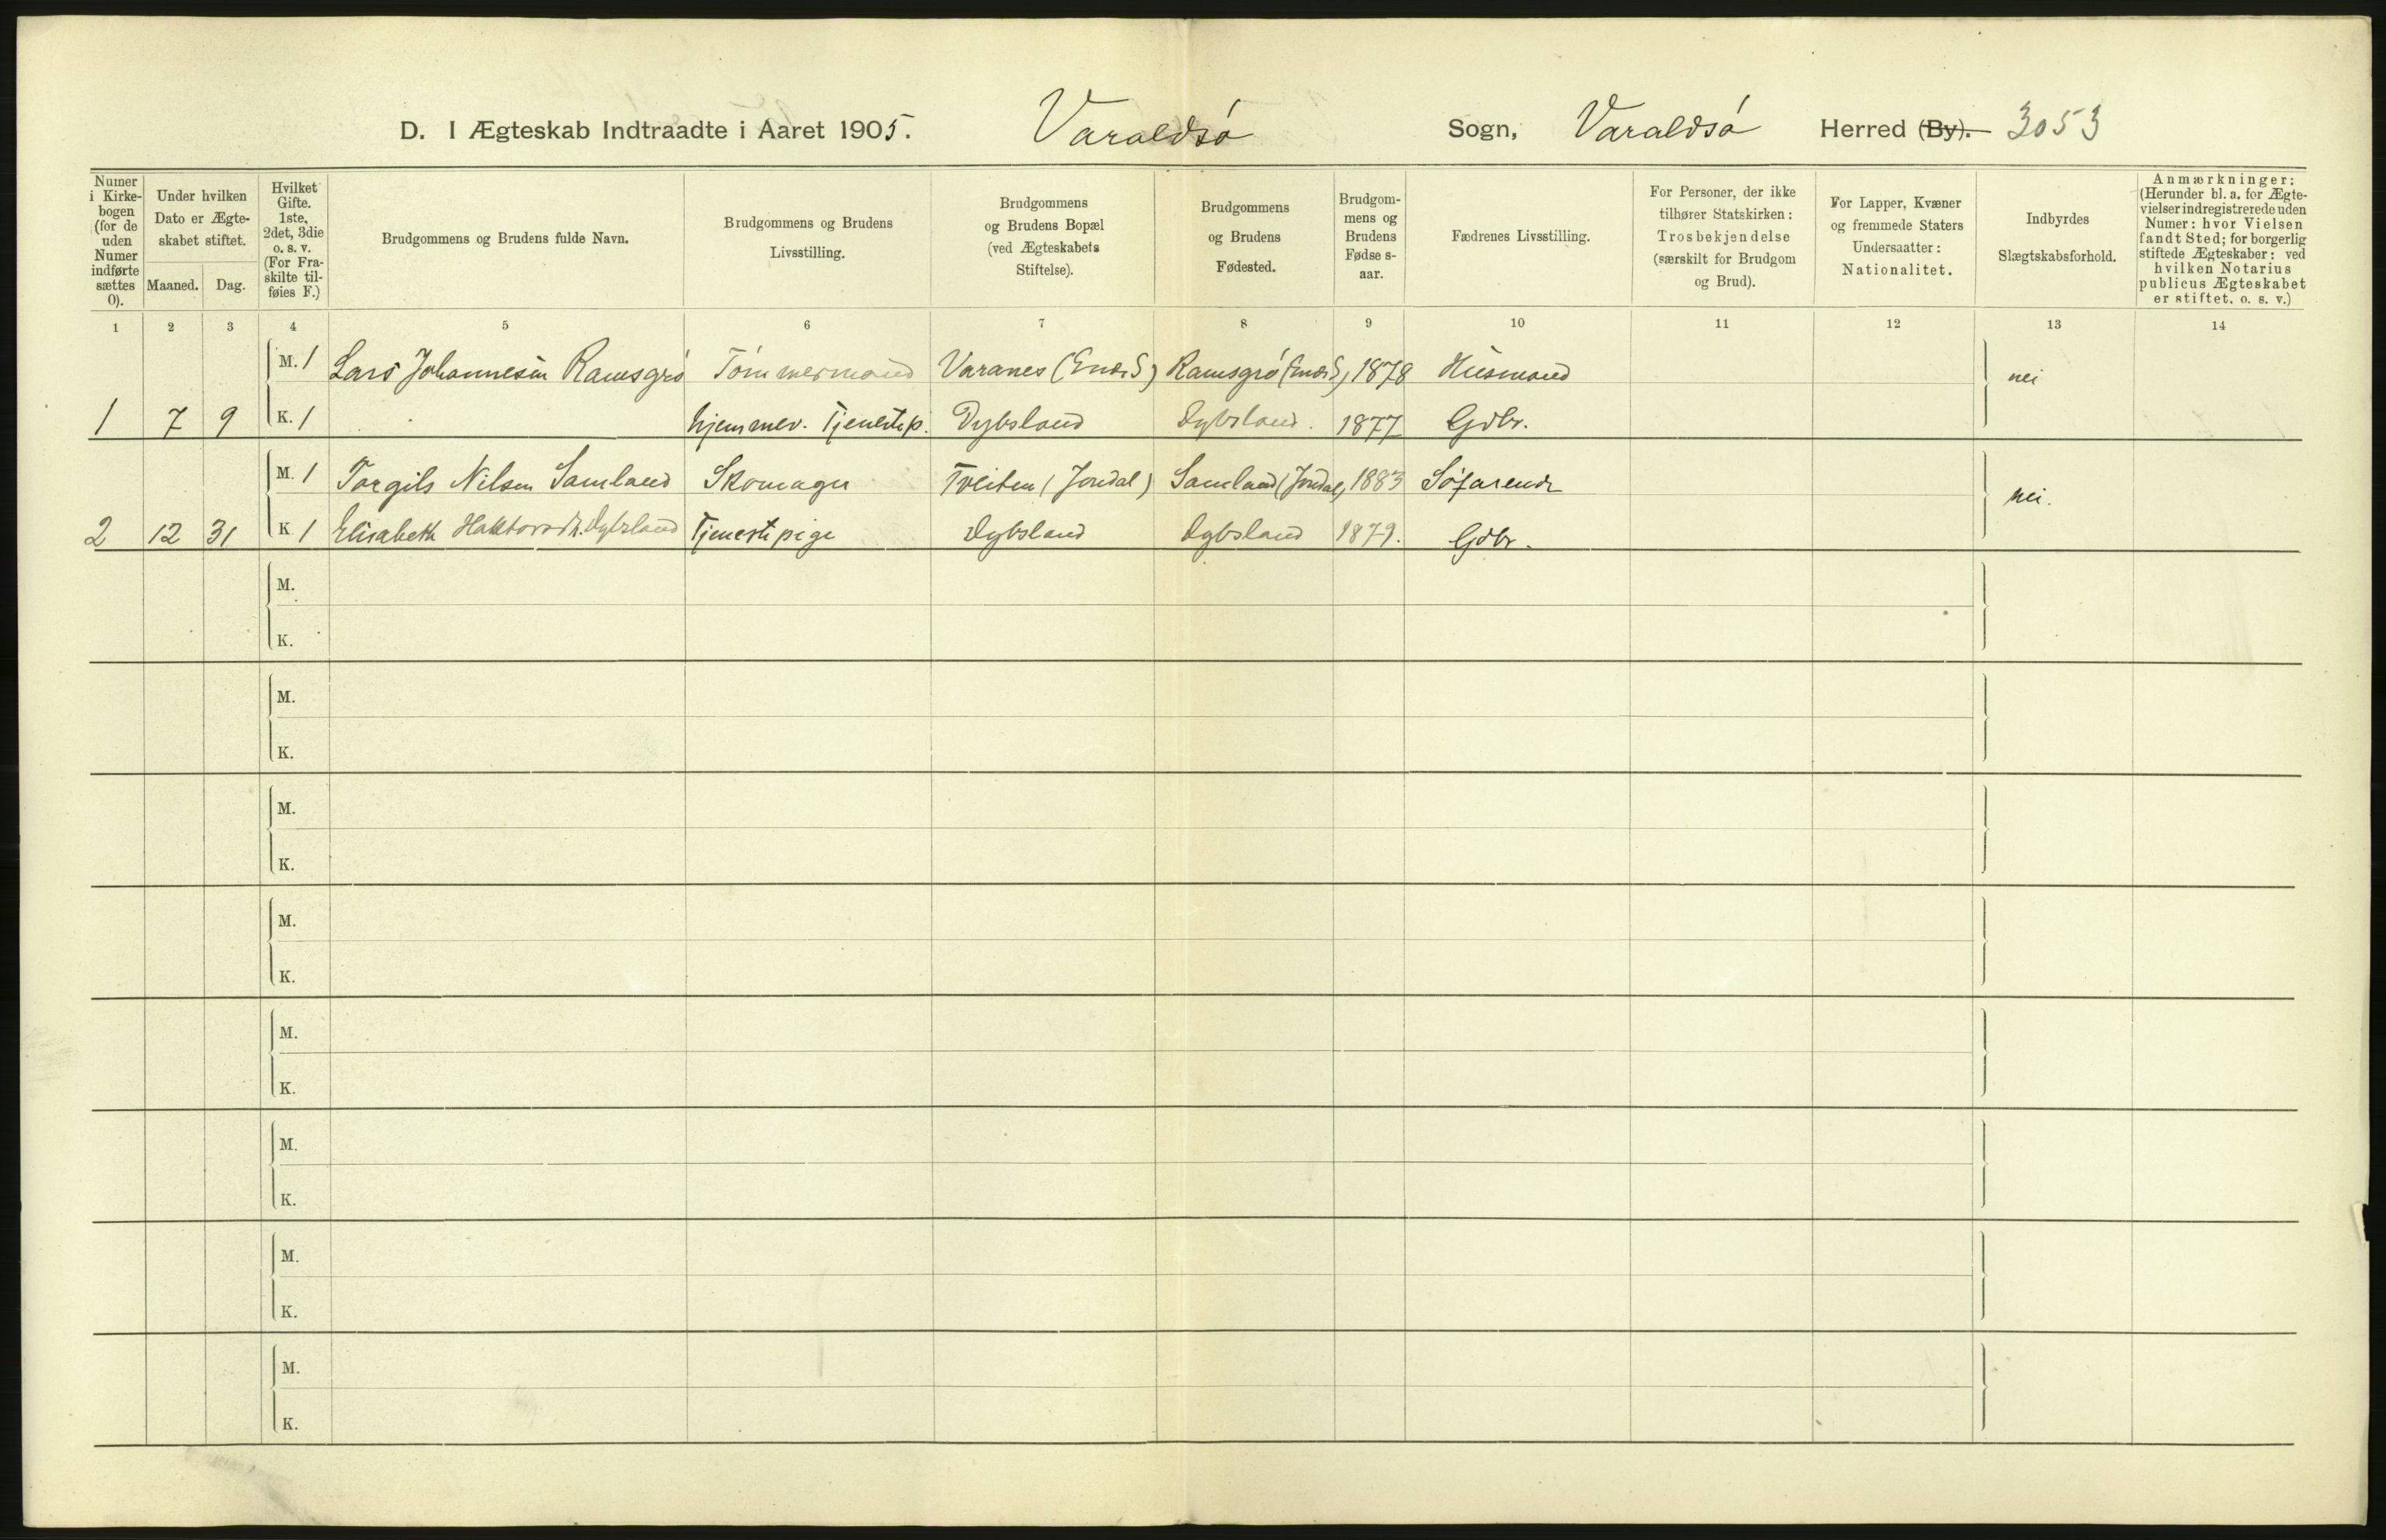 D. I Ægteskab Indtraadte i Aaret 1905. Varaldsø Sogn, Varaldsø Herred (By). 3053
Numer i Kirke-bogen (for de uden Numer indførte sættes 0).
Under hvilken Dato er Ægte-skabet stiftet.
Maaned. Dag.
Hvilket Gifte. 1ste, 2det, 3die o. s. v. (For Fra-skilte til-føies F.)
Brudgommens og Brudens fulde Navn.
Brudgommens og Brudens Livsstilling.
Brudgommens og Brudens Bopæl (ved Ægteskabets Stiftelse).
Brudgommens og Brudens Fødested.
Brudgom-mens og Brudens Fødse s-aar.
Fædrenes Livsstilling.
For Personer, der ikke tilhører Statskirken: Trosbekjendelse (særskilt for Brudgom og Brud).
For Lapper, Kvæner og fremmede Staters Undersaatter: Nationalitet.
Indbyrdes Slægtskabsforhold.
Anmærkninger: (Herunder bl. a. for Ægte-vielser indregistrerede uden Numer: hvor Vielsen fandt Sted; for borgerlig stiftede Ægteskaber: ved hvilken Notarius publicus Ægteskabet er stiftet. o. s. v.)
1 2 3 4 5 6 7 8 9 10 11 12 13 14
M. 1 Lars Johannesen Ramsgrø Tømmermand Varanes ( ) Ramsgrø 1878 Husmand nei
1 7 9 K. 1 hjemmev. Tjenestep. Dybsland Dybsland. 1877 Gdbr.
M. 1 Torgils Nilsen Samland Skomager Tveiten (Jondal) Samland (Jondal) 1883 Søfarende nei.
2 12 31 K 1 Elisabeth Dybsland Tjenestepige Dybsland Dybsland 1879. Gdbr.
M.
K.
M.
K.
M.
K.
M.
K.
M.
K.
M.
K.
M.
K.
M.
K.